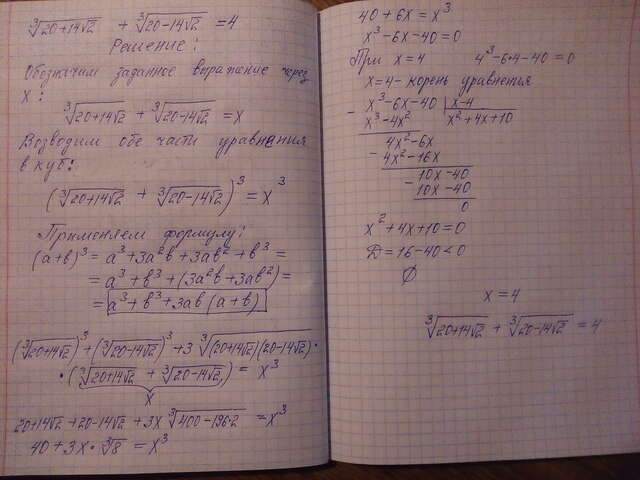 ∛20+14√2 + ∛20-14√2 = 4
Решение:
Обозначим заданное выражение через
х:
∛20+14√2 + ∛20-14√2 = x
Возводим обе части уравнения
в куб:
(∛20+14√2 + ∛20-14√2)³ = x³
Применяем формулу:
(a+b)³ = a³+3a²b+3ab²+b³ =
= a³+b³+(3a²b+3ab²)=
= a³+b³+3ab(a+b)
(∛20+14√2)³+(∛20-14√2)³+3∛(20+14√2)(20-14√2)·
·(∛20+14√2 + ∛20-14√2) = x³
x
20+14√2+20-14√2+3x∛400-196·2 = x³
40+3x·∛8 = x³
40+6x = x³
x³-6x-40=0
При x=4 4³-6·4-40=0
x=4- корень уравнения
x³-6x-40 | x-4
- x³-4x² x²+4x+10
4x²-6x
- 4x²-16x
10x-40
- 10x-40
0
x²+4x+10=0
Д=16-40<0
∅
x=4
∛20+14√2 + ∛20-14√2 = 4